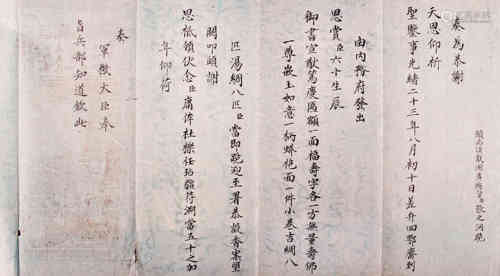 奏為恭謝
天恩仰祈
聖鑒事光緒二十三年八月初十日差弁回鄂齎到
由內務府發出
恩賞臣六十生辰
御書宣猷篤慶匾額一面福壽字各一方無量壽佛
一尊嵌玉如意一柄蟒袍面一件小卷吉綢八
匹湯綢八匹臣當即跪迎至署恭設香案望
闕叩頭謝
恩祗領伏念臣庸樗杜櫟任珀當五十之加
年仰荷
奏
軍機大臣奉
旨兵部知道欽此